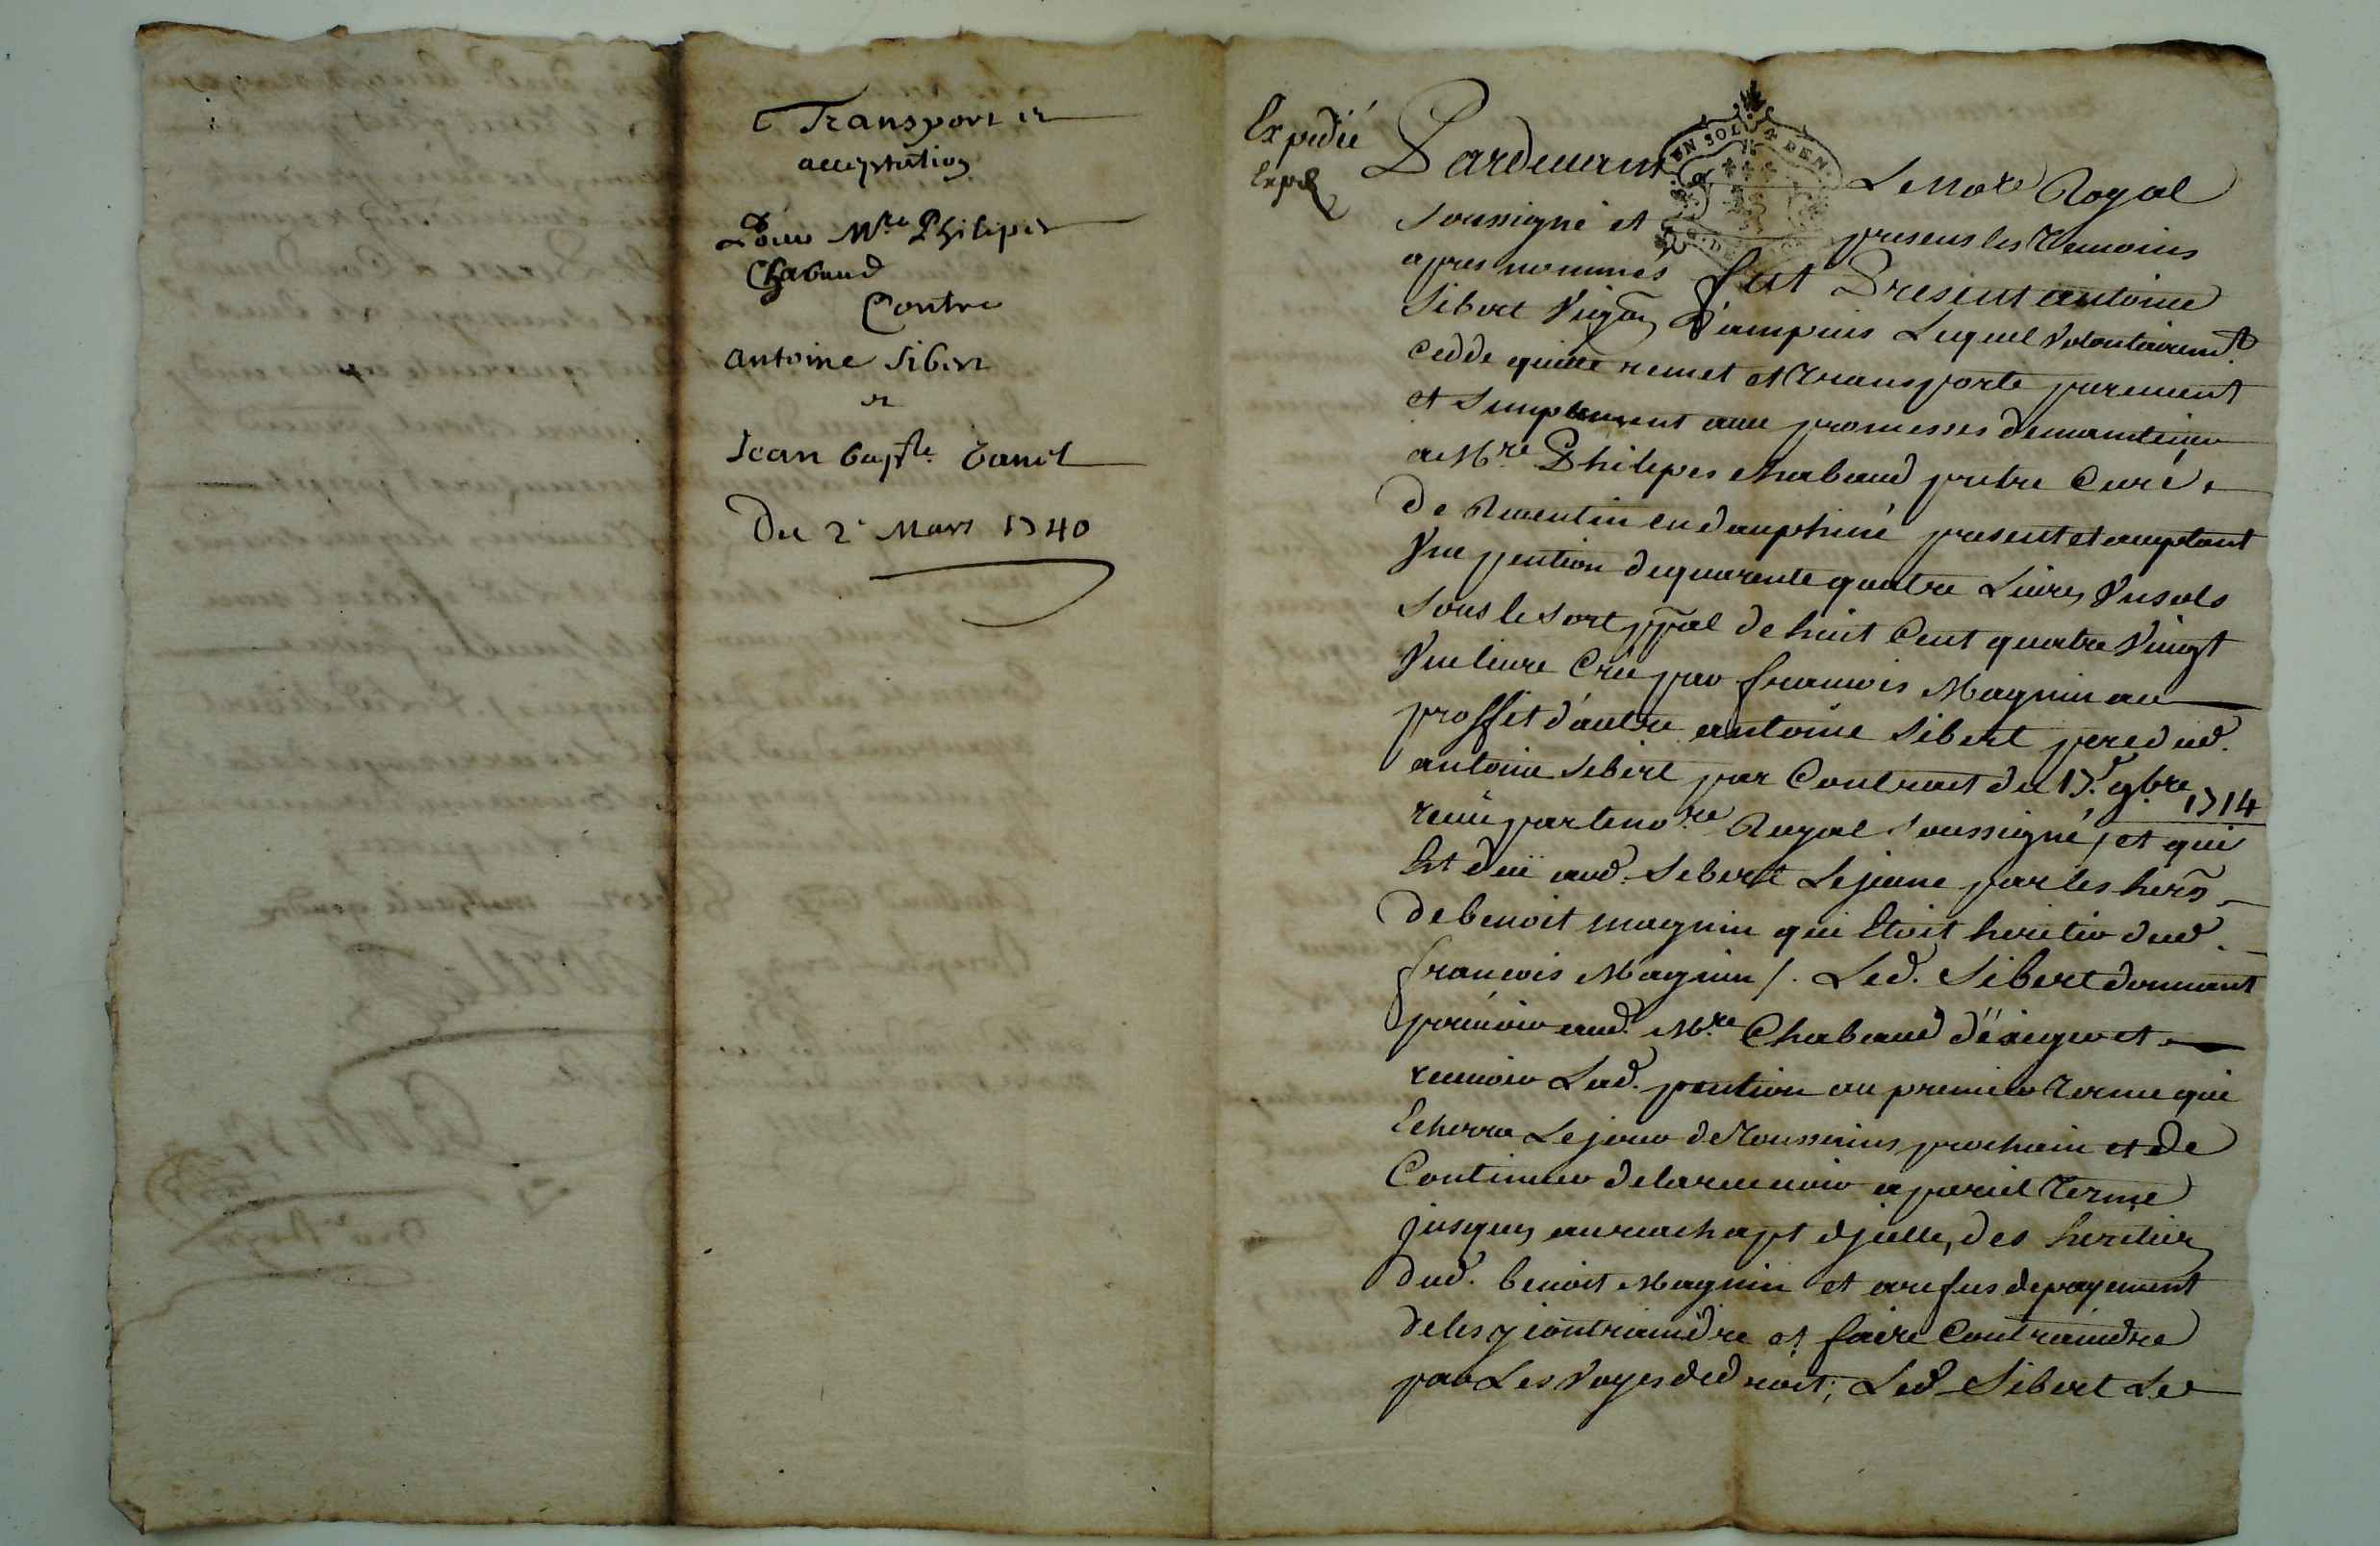 Transport et
acceptation
Pour Mre Philipes
Chabaud
Contre
antoine Sibert
et
Jean bapte. Canet
Du 2e Mars 1740
Expedié
Expé
Pardevant Le nore Royal
soussigné et presens les temoins
apres nommés fut Present antoine
Sibert Vigon D'ampuis Lequel volontairemt.
cedde quitte remet et transporte purement
et simplement avec promesses de maintenir
a Mre Philipes Chabaud pretre Curé
de en dauphiné present et acceptant
Une pention de quarente quatre Livres Un sols
sous le sort ppal de huit Cent quatre Vingt
Une livre Crée par francois Magnin au
proffit d'autre antoine Sibert pere dud.
antoine Sibert par Contract du 17e. 9bre 1714
receu par le nore Royal soussigné, et qui
Est deü aud. Sibert Le jeune par les hers
de benoit magnin qui Etoit heritier dud.
francois Magnin /. Led. Sibert donnant
pouvoir aud. Mre Chabaud d'éxiger et
recevoir Lad. pention au premier terme qui
Echerra Le jour de Toussains prochain et de
Continuer de la recevoir a pareil terme
jusques au rachapt d'jcelle, des heritiers
dud. benoit Magnin et a refus de payement
de les y contraindre et faire Contraindre
par Les Voyes de droit; Led. Sibert Le